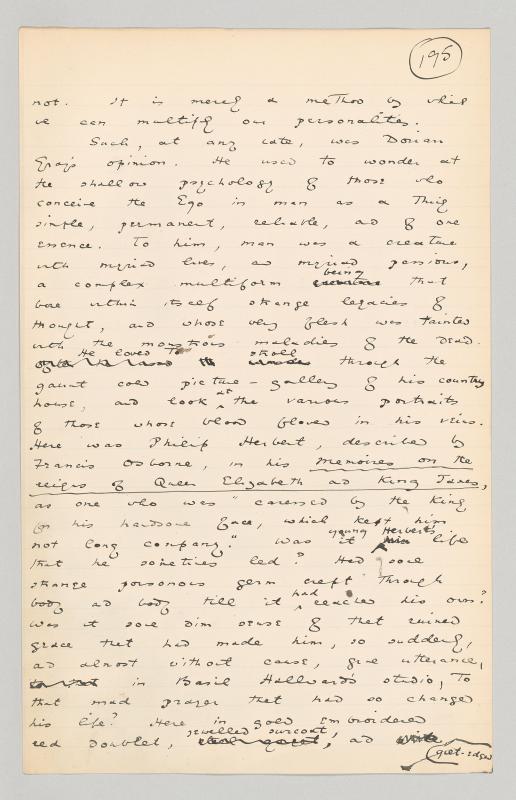 195
not. It is merely a method by which
we can multiply our personalities.
Such, at any rate, was Dorian
Gray's opinion. He used to wonder at
the shallow psychology of those who
conceive the Ego in man as a Thing
simple, permanent, reliable, and of one
essence. To him, man was a creature
with myriad lives, and myriad passions,
being
a complex multiform that
bore within itself strange legacies of
thought, and whose very flesh was tainted
with the monstrous maladies of the Dead.
He loved to stroll through the
gaunt cold picture-gallery of his country
house, and look at the various portraits
of those whose blood flowed in his veins.
Here was Philip Herbert, described by
Francis Osborne, in his Memoires on the
reigns of Queen Elizabeth and King James,
as one who was "caressed by the King
for his handsome face, which kept him
not long company." Was it young Herbert's life
that he sometimes led? Had some
strange poisonous germ crept through
body and body till it had reached his own?
Was it some dim sense of that ruined
grace that had made him, so suddenly,
and almost without cause, give utterance,
in Basil Hallward's studio, to
that mad prayer that had so changed
his life? Here in gold embroidered
red doublet, jewelled surcoat, and
gilt-edged